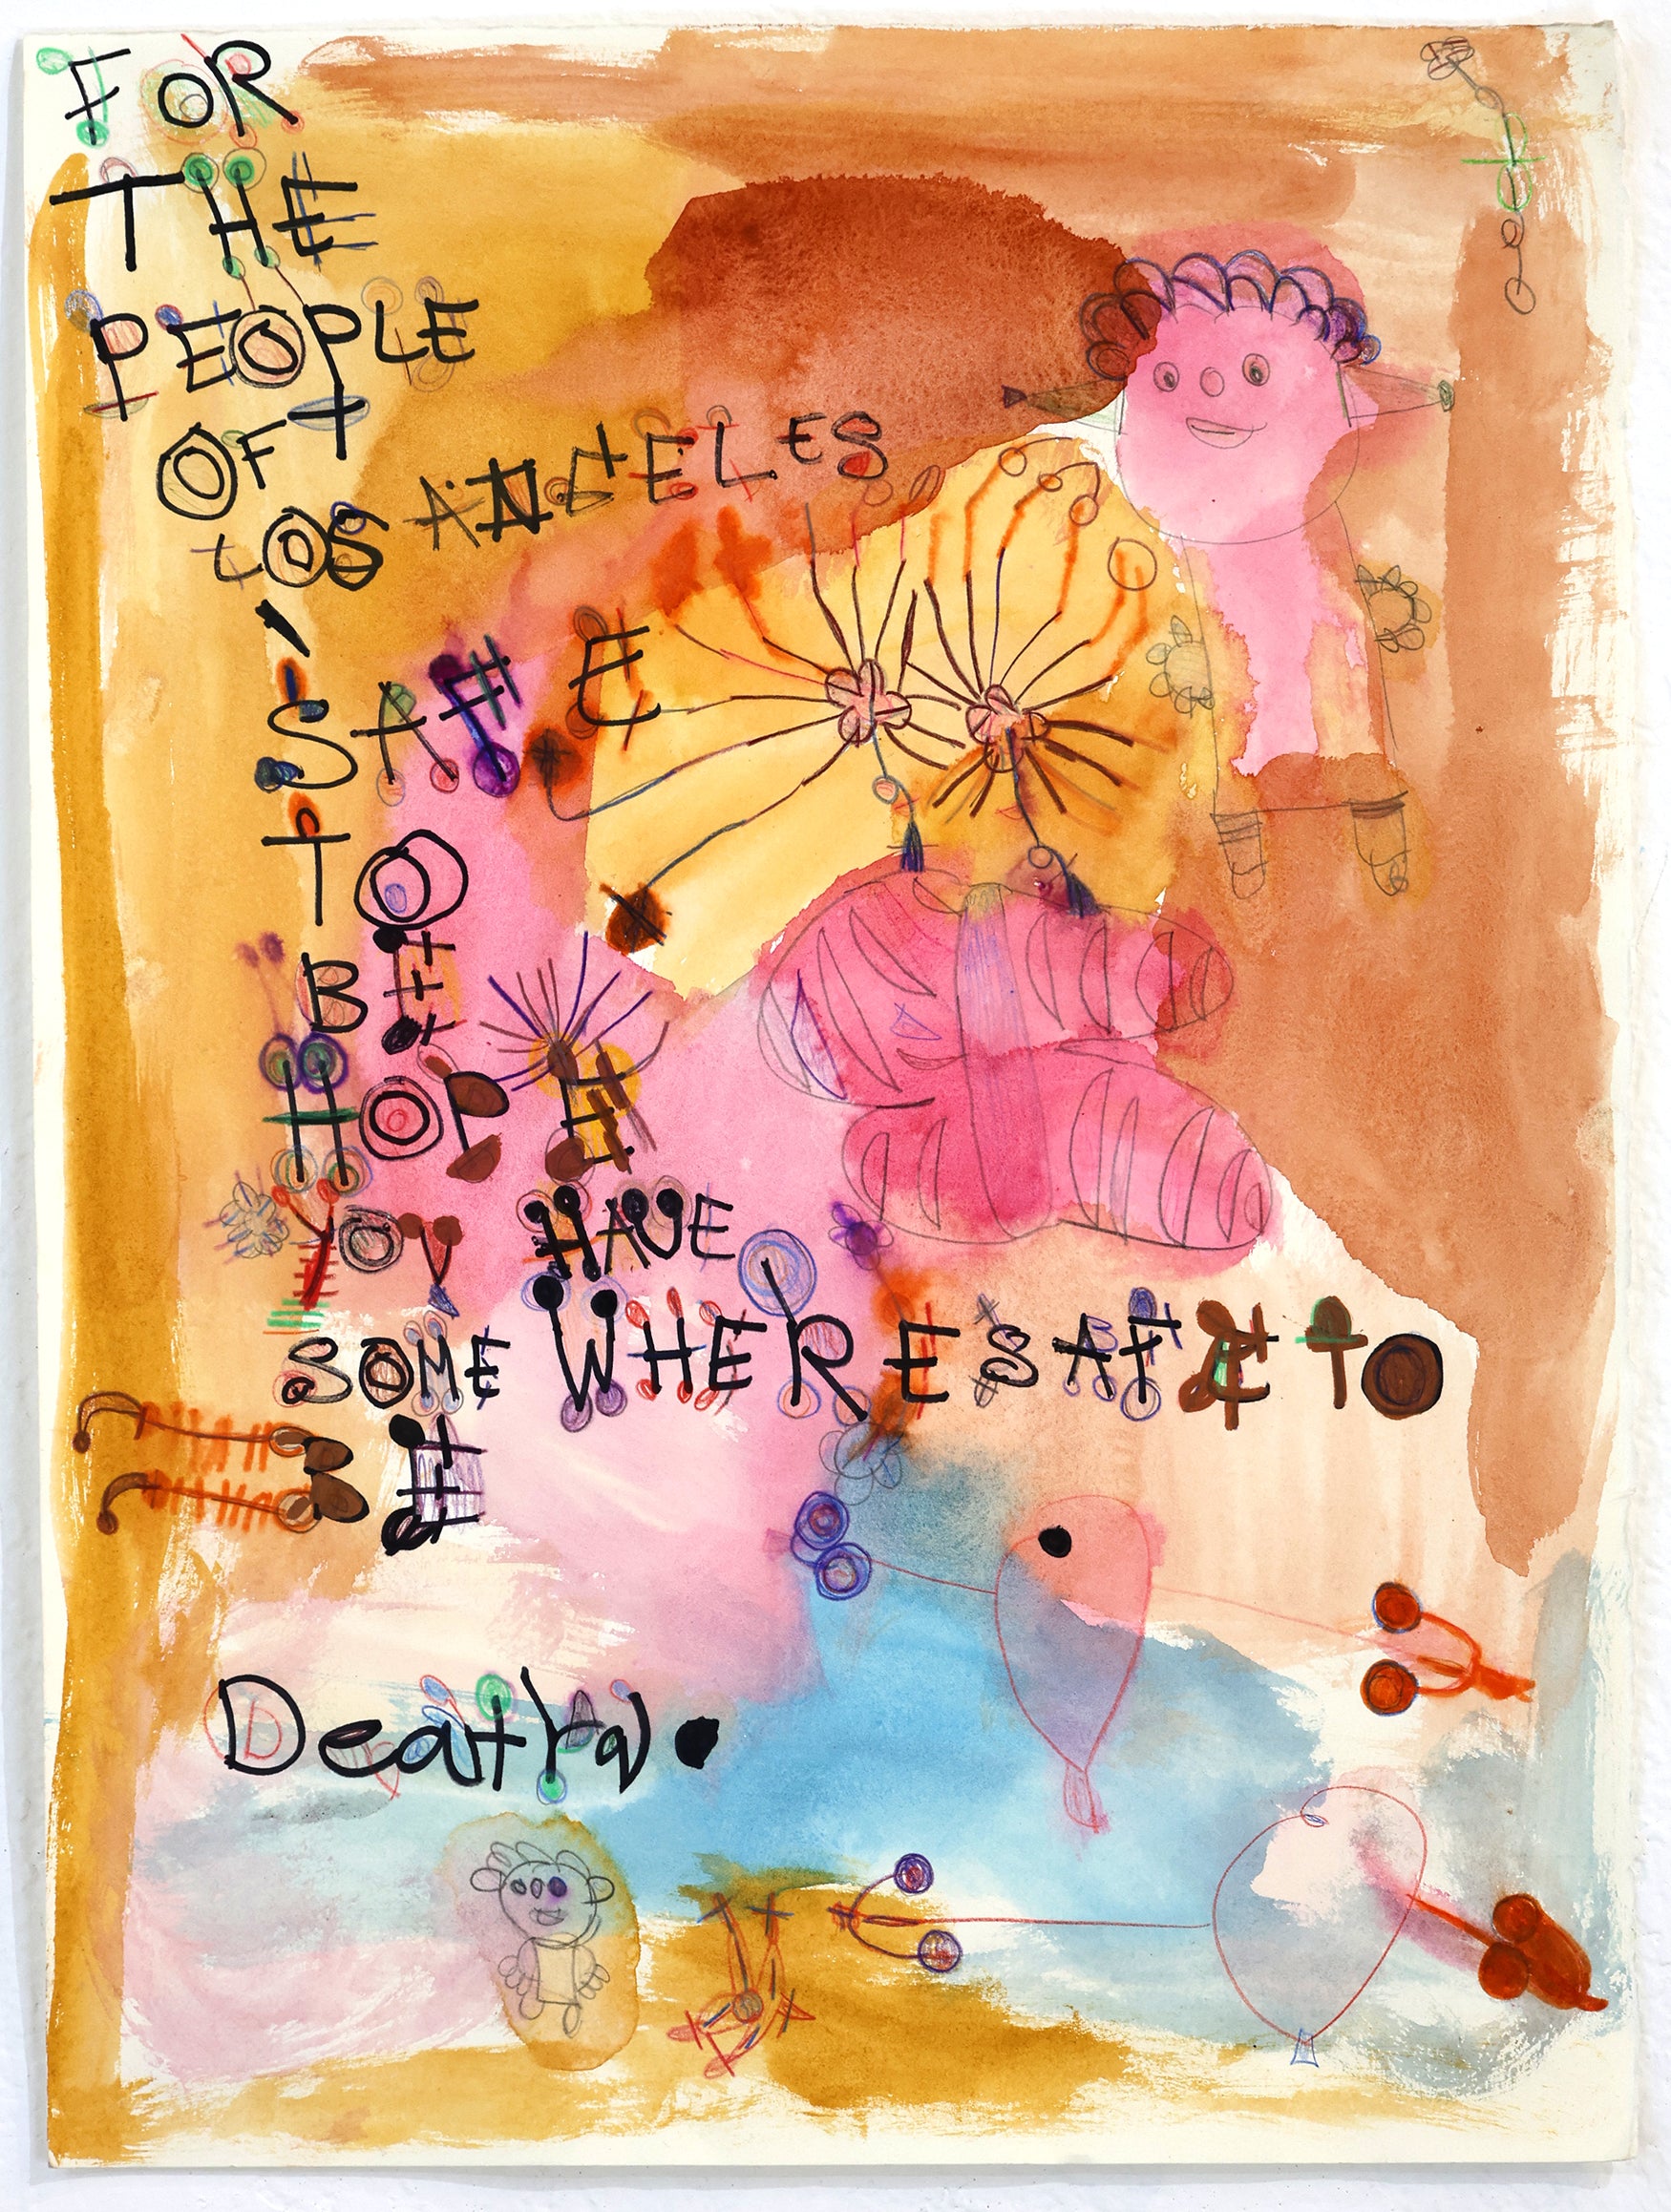 FOR
THE
PEOPLE
OF
LOS ANGELES,
SAFE
TO
BE
HOPE
YOU HAVE
SOME WHERE SAFE TO
BE